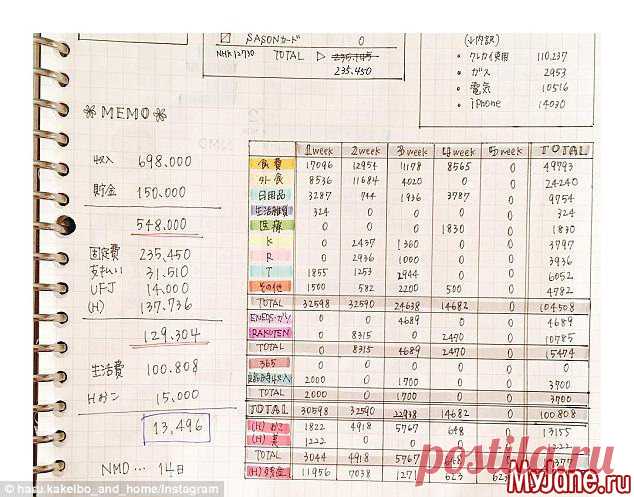 SAISONカード 0
NHK12730 TOTAL ▷ 235.450
(↓内訳)
• クレカイ使用 110.237
• ガス 2953
• 電気 10516
• iPhone 14030
❀ MEMO ❀
収入 698.000
貯金 150.000
548.000
固定費 235,450
支払い 31.510
UFJ 14.000
(H) 137.736
129.304
生活費 100.808
15,000
13,496
NMD… 14日
1week 2week 3week 4week 5week TOTAL
食費 17096 12954 11178 8565 0 49793
外食 8536 11684 4020 0 0 24240
日用品 3287 744 1936 3787 0 9754
生活雑貨 324 0 0 0 0 324
医療 0 0 0 1830 0 1830
K 0 2437 1360 0 0 3797
R 0 2936 1000 0 0 3936
T 1855 1253 2944 0 0 6052
その他 1500 582 2200 500 0 4782
TOTAL 32598 32590 24638 14682 0 104508
0 0 4689 0 0 4689
RAKUTEN 0 8315 0 2470 0 10785
TOTAL 0 8315 4689 2470 0 15474
365 0 0 0 0 0 0
臨時収入 2000 0 1700 0 0 3700
TOTAL 2000 0 1700 0 0 3700
TOTAL 30598 32590 22938 14682 0 100808
(H) 1822 4918 5767 648 0 13155
(H) 美 1222 0 0 0 0 1222
TOTAL 3044 4918 5767 648
(H) 残金 11956 7038 1271 623
© haru.kakeibo_and_home/Instagram
postila.ru
MyJane.ru